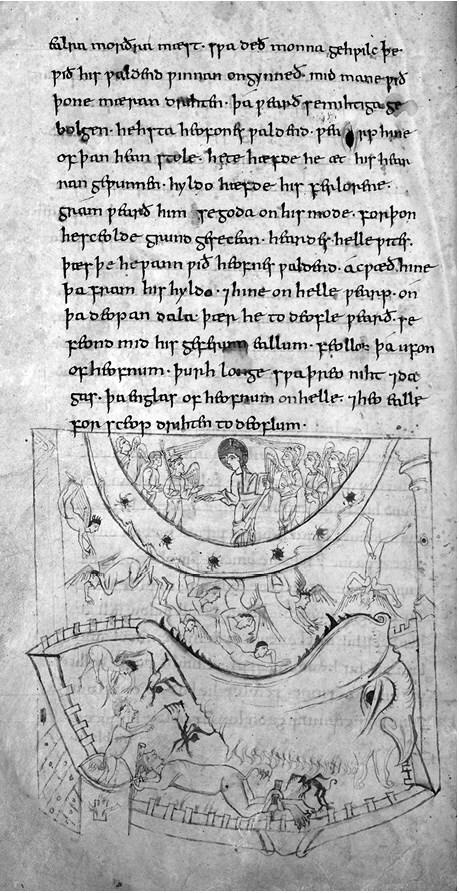 ealra morðra mæst· sƿa deð monna gehƿilc þe·
ƿið his ƿaldend ƿinnan ongynneð· mid mane ƿið
þone mæran drihten· þa ƿearð se mihtiga ge
bolgen· hehsta heofones ƿaldend· ƿearp hine
of þan hean stole· hete hæfde he æt his hear
ran geƿunnen· hyldo hæfde his ferlorene·
gram ƿearð him se goda on his mode· forþon
he sceolde grund gesecean· heardes helle ƿites·
þæs þe he ƿann ƿið heofnes ƿaldend· acƿæð hine
þa fram his hyldo· ⁊ hine on helle ƿearp· on
þa deopan dala þær he to deofle ƿearð· se
feond mid his geferum eallum· feollon þa ufon
of heofnum· þurh longe sƿa þreo niht ⁊ da
gas· þa englas of heofnum on helle· ⁊ heo ealle
for sceop drihten to deoflum·